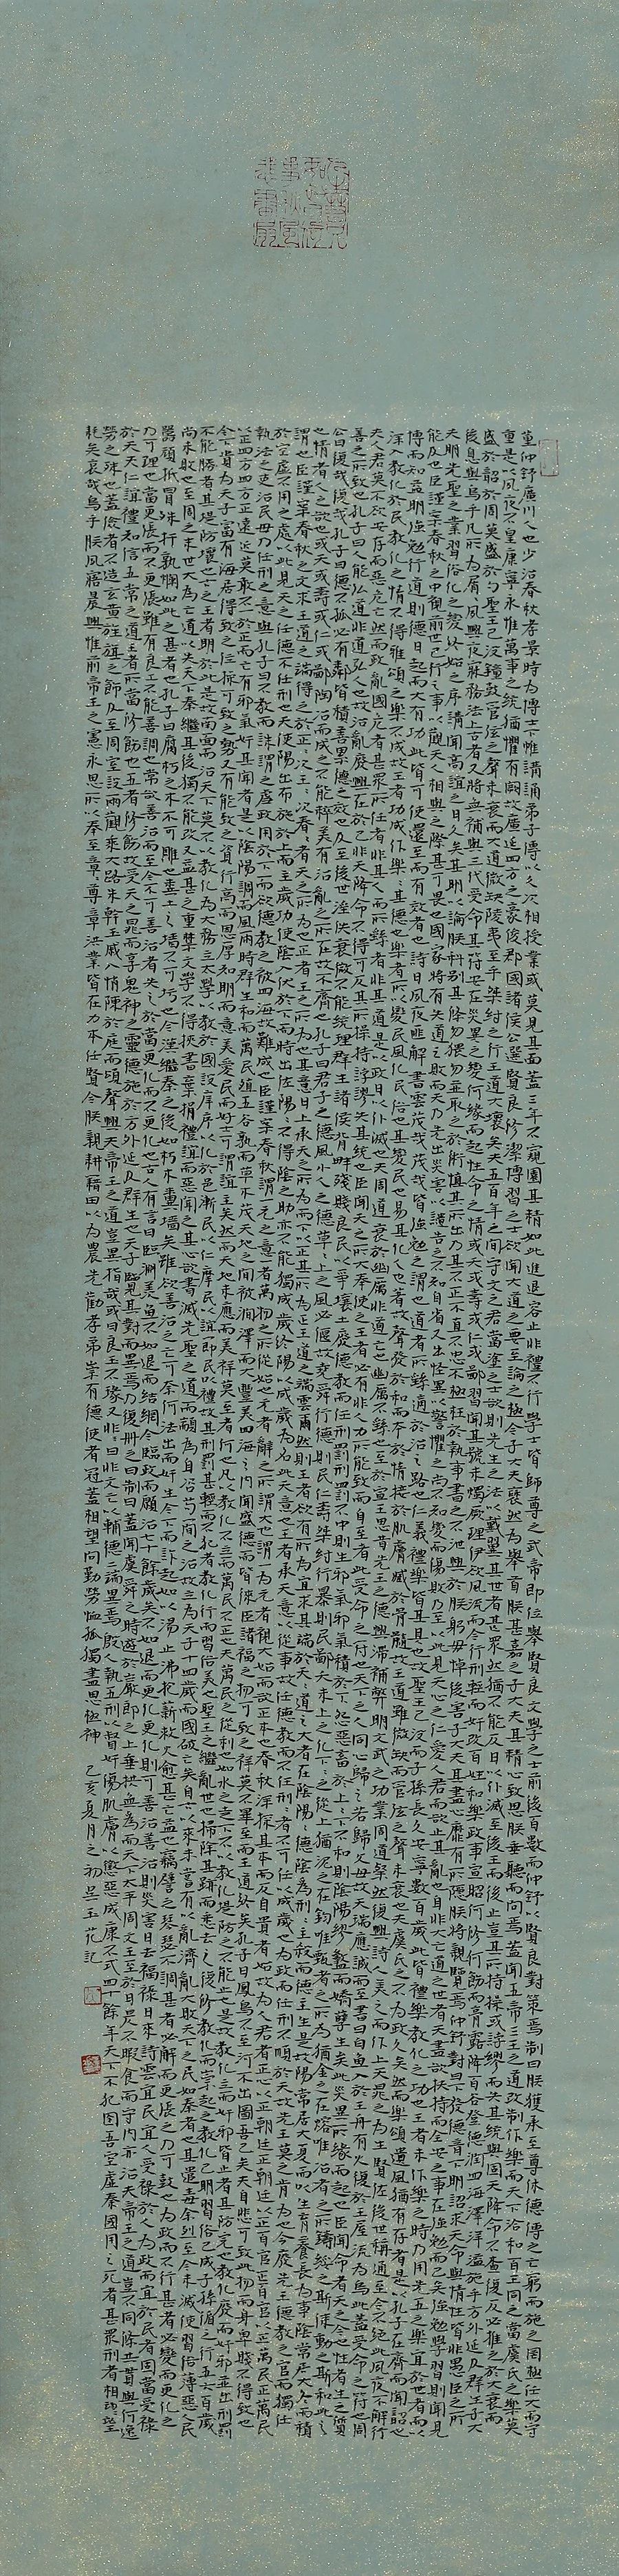 董仲舒廣川人也少治春秋孝景時為博士下帷講誦弟子傳以久次相授業或莫見其面蓋三年不窺園其精如此進退容止非禮不行學士皆師尊之武帝即位舉賢良文學之士前後百數而仲舒以賢良對策焉制曰朕獲承至尊休德傳之亡窮而施之罔極任大而守
重是以夙夜不皇康寧永惟萬事之統猶懼有闕故廣延四方之豪俊郡國諸侯公選賢良修潔博習之士欲聞大道之要至論之極今子大夫褎然為舉首朕甚嘉之子大夫其精心致思朕垂聽而問焉蓋聞五帝三王之道改制作樂而天下洽和百王同之當虞氏之樂莫
盛於韶於周莫盛於勺聖王已沒鐘鼓管弦之聲未衰而大道微缺陵夷至乎桀紂之行王道大壞矣夫五百年之間守文之君當塗之士欲則先王之法以戴翼其世者甚眾然猶不能反日以仆滅至後王而後止豈其所持操或誖繆而失其統與固天降命不查復反必推之於大衰而
後息與烏乎凡所為屑屑夙興夜寐務法上古者又將無補與三代受命其符安在災異之變何緣而起性命之情或夭或壽或仁或鄙習聞其號未燭厥理伊欲風流而令行刑輕而奸改百姓和樂政事宣昭何修何飭而膏露降百穀登德潤四海澤洋溢施乎方外延及群生子大
夫明先聖之業習俗化之變終始之序講聞高誼之日久矣其明以諭朕科別其條勿猥勿並取之於術慎其所出乃其不正不直不忠不極枉於執事書之不泄興於朕躬毋悼後害子大夫其盡心靡有所隱朕將親覽焉仲舒對曰陛下發德音下明詔求天命與情性皆非愚臣之所
能及也臣謹案春秋之中視前世已行之事以觀天人相與之際甚可畏也國家將有失道之敗而天乃先出災害以譴告之不知自省又出怪異以警懼之尚不知變而傷敗乃至以此見天心之仁愛人君而欲止其亂也自非大亡道之世者天盡欲扶持而全安之事在強勉而已矣強勉學習則聞見
博而知益明強勉行道則德日起而大有功此皆可使還至而有效者也詩曰夙夜匪解書雲茂哉茂哉皆強勉之謂也道者所繇適於治之路也仁義禮樂皆其具也故聖王已沒而子孫長久安寧數百歲此皆禮樂教化之功也王者未作樂之時乃用先王之樂宜於世者而以
深入教化於民教化之情不得雅頌之樂不成故王者功成作樂樂其德也樂者所以變民風化民俗也其變民也易其化人也著故聲發於和而本於情接於肌膚臧於骨髓故王道雖微缺而管弦之聲未衰也夫虞氏之不為政久矣然而樂頌遺風猶有存者是以孔子在齊而聞韶也
夫人君莫不欲安存而惡危亡然而政亂國危者甚眾所任者非其人而所繇者非其道是以政日以仆滅也夫周道衰於幽厲非道亡也幽厲不繇也至於宣王思昔先王之德興滯補弊明文武之功業周道粲然復興詩人美之而作上天晁之為生賢佐後世稱通至今不絕此夙夜不解行
善之所致也孔子曰人能弘道非道弘人也故治亂廢興在於己非天降命不得可反其所操持誖謬失其統也臣聞天之所大奉使之王者必有非人力所能致而自至者此受命之符也天下之人同心歸之若歸父母故天瑞應誠而至書曰白魚入於王舟有火復於王屋流為烏此蓋受命之符也周
公曰復哉復哉孔子曰德不孤必有鄰皆積善累德之效也及至後世淫佚衰微不能統理群生諸侯背畔殘賊良民以爭壤土廢德教而任刑罰刑罰不中則生邪氣邪氣積於下怨惡畜於上上下不和則陰陽繆盭而妖孽生矣此災異所緣而起也臣聞命者天之令也性者生之質
也情者人之欲也或夭或壽或仁或鄙陶冶而成之不能粹美有治亂之所在故不齊也孔子曰君子之德風小人之德草草上之風必偃故堯舜行德則民仁壽桀紂行暴則民鄙夭夫上之化下下之從上猶泥之在鈞唯甄者之所為猶金之在鎔唯冶者之所鑄綏之斯徠動之斯和此之
謂也臣謹案春秋之文求王道之端得之於正正次王王次春春者天之所為也正者王之所為也其意曰上承天之所為而下以正其所為正王道之端雲爾然則王者欲有所為宜求其端於天天道之大者在陰陽陽為德陰為刑刑主殺而德主生是故陽常居大夏而以生育養長為事陰常居大冬而積
於空虛不用之處以此見天之任德不任刑也天使陽出布施於上而主歲功使陰入伏於下而時出佐陽陽不得陰之助亦不能獨成歲終陽以成歲為名此天意也王者承天意以從事故任德教而不任刑刑者不可任以成歲也為政而任刑不順於天故先王莫之肯為也今廢先王德教之官而獨任
執法之吏治民毋乃任刑之意與孔子曰不教而誅謂之虐虐政用於下而欲德教之被四海故難成也臣謹案春秋謂一元之意一者萬物之所從始也元者辭之所謂大也謂一為元者視大始而欲正本也春秋深探其本而反自貴者始故為人君者正心以正朝廷正朝廷以正百官正百官以正萬民正萬民
以正四方四方正遠近莫敢不壹於正而亡有邪氣奸其間者是以陰陽調而風雨時群生和而萬民殖五穀孰而草木茂天地之間被潤澤而大豐美四海之內聞盛德而皆徠臣諸福之物可致之祥莫不畢至而王道終矣孔子曰鳳鳥不至河不出圖吾已矣夫自悲可致此物而身卑賤不得致也
今陛下貴為天子富有四海居得致之位操可致之勢又有能致之資行高而恩厚知明而意美愛民而好士可謂誼主矣然而天地未應而美祥莫至者何也凡以教化不立而萬民不正也夫萬民之從利也如水之走下不以教化堤防之不能止也是故教化立而奸邪皆止者其堤防完也教化廢而奸邪並出刑罰
不能勝者其堤防壞也古之王者明於此是故南面而治天下莫不以教化為大務立太學以教於國設庠序以化於邑漸民以仁摩民以誼節民以禮故其刑罰甚輕而禁不犯者教化行而習俗美也聖王之繼亂世也掃除其跡而悉去之復修教化而崇起之教化已明習俗已成子孫循之行五六百歲
尚未敗也至周之末世大為亡道以失天下秦繼其後獨不能改又益甚之重禁文學不得挾書棄捐禮誼而惡聞之其心欲盡滅先聖之道而顓為自恣苟簡之治故立為天子十四歲而國破亡矣自古以來未嘗有以亂濟亂大敗天下之民如秦者也其遺毒餘烈至今未滅使習俗薄惡人民
嚚頑抵冒殊扞孰爛如此之甚者也孔子曰腐朽之木不可雕也糞土之牆不可圬也今漢繼秦之後如朽木糞牆矣雖欲善治之亡可奈何法出而奸生令下而詐起如以湯止沸抱薪救火愈甚亡益也竊譬之琴瑟不調甚者必解而更張之乃可鼓也為政而不行甚者必變而更化之
乃可理也當更張而不更張雖有良工不能善調也常欲善治而至今不可善治者失之於當更化而不更化也古人有言曰臨淵羨魚不如退而結網今臨政而願治七十餘歲矣不如退而更化更化則可善治善治則災害日去福祿日來詩雲宜民宜人受祿於人為政而宜於民者固當受祿
於天夫仁誼禮知信五常之道王者所當修飭也五者修飭故受天之晁而享鬼神之靈德施於方外延及群生也天子覽其對而異焉乃復冊之曰制曰蓋聞虞舜之時遊於巖郎之上垂拱無為而天下太平周文王至於日昃不暇食而宇內亦治夫帝王之道豈不同條共貫與何逸
勞之殊也蓋儉者不造玄黃旌旗之飾及至周室設兩觀乘大路朱幹玉戚八佾陳於庭而頌聲興夫帝王之道豈異指哉或曰良玉不瑑又非曰非文亡以輔德二端異焉殷人執五刑以督奸傷肌膚以懲惡成康不式四十餘年天下不犯囹圄空虛秦國用之死者甚眾刑者相望
耗矣哀哉烏乎朕夙寤晨興惟前帝王之憲永思所以奉至尊章洪業皆在力本任賢今朕親耕藉田以為農先勸孝弟崇有德使者冠蓋相望問勤勞恤孤獨盡思極神 乙亥夏月之初吳玉花記